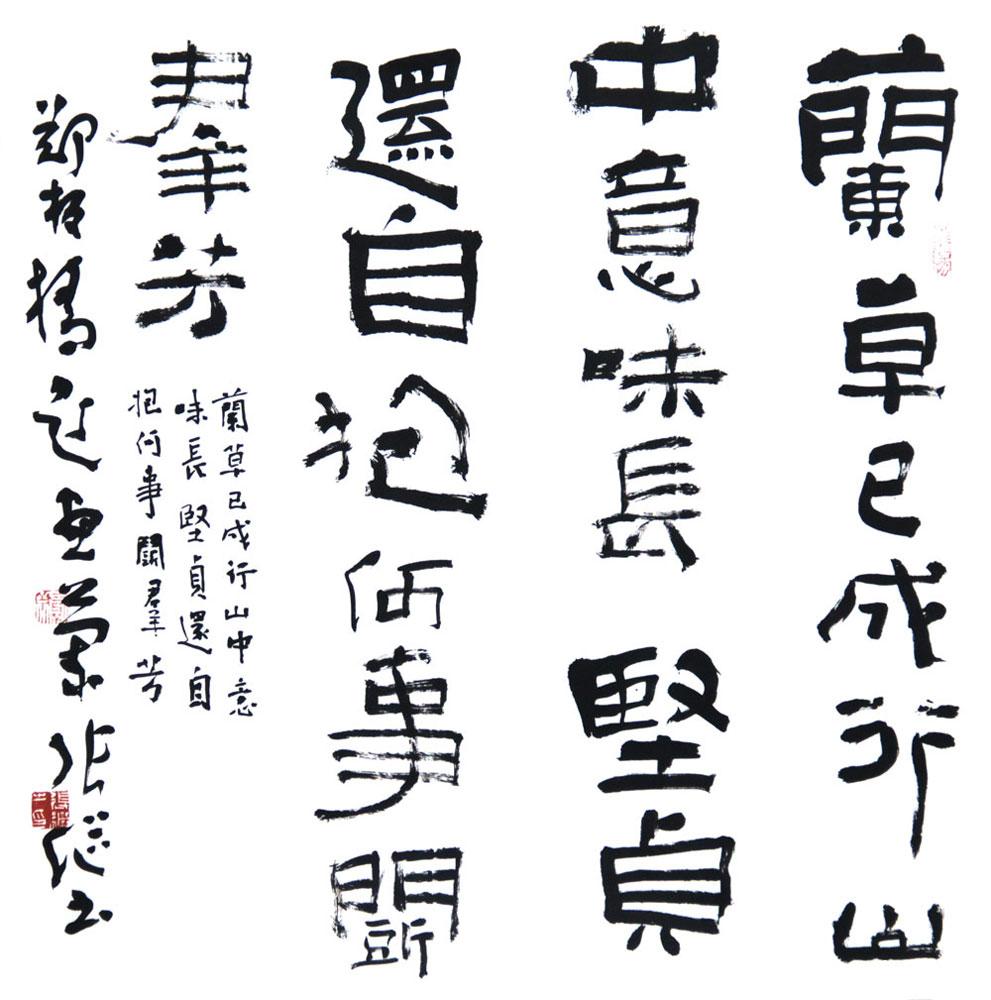 蘭草已成行山
中意味長堅貞
還自抱何事鬭
羣芳
蘭草已成行山中意
味長堅貞還自
抱何事鬭羣芳
鄭板橋題画蘭張継书